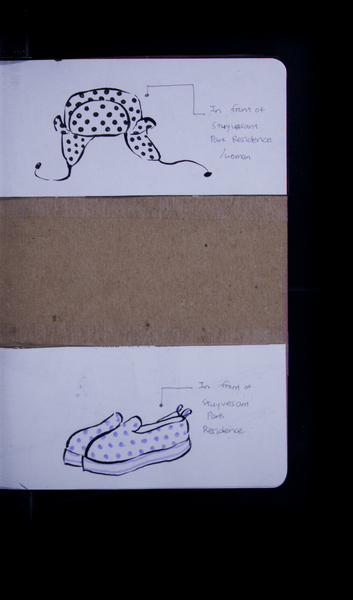 In front of
Stuyvesant
Park Residence
/woman
In front of
Stuyvesant
Park
Residence